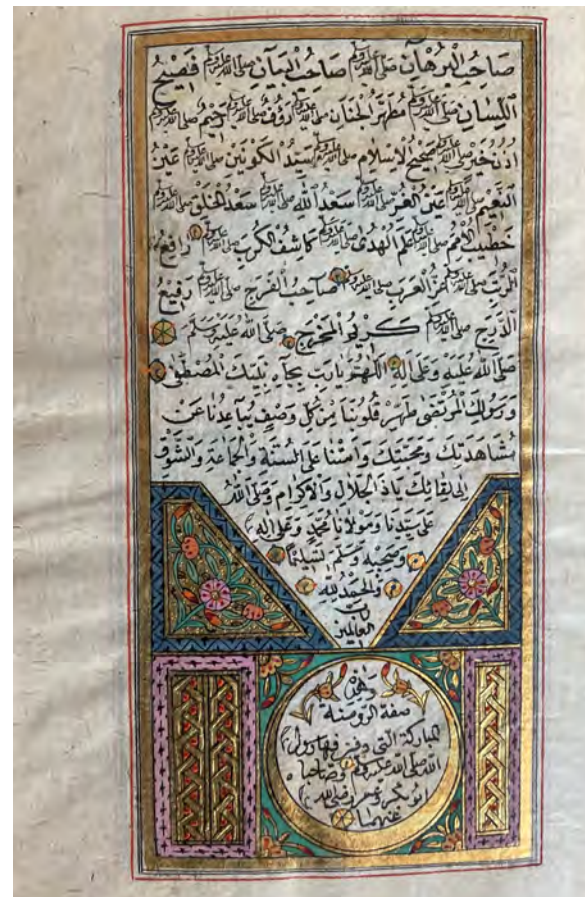 صَاحِبُ الْبُرْهَانِ صلى الله عليه وسلم صَاحِبُ الْبَيَانِ صلى الله عليه وسلم فَصِيحُ
اللِّسَانِ صلى الله عليه وسلم مُطَهَّرُ الْجَنَانِ صلى الله عليه وسلم رَؤُفٌ صلى الله عليه وسلم رَحِيمٌ صلى الله عليه وسلم
اُذُنُ خَيْرٍ صلى الله عليه وسلم صَحِيحُ الْاِسْلَامِ صلى الله عليه وسلم سَيِّدُ الْكَوْنَيْنِ صلى الله عليه وسلم عَيْنُ
النَّعِيمِ صلى الله عليه وسلم عَيْنُ الْغُرِّ صلى الله عليه وسلم سَعْدُ اللّٰهِ صلى الله عليه وسلم سَعْدُ الْخَلْقِ صلى الله عليه وسلم
خَطِيبُ الْاُمَمِ صلى الله عليه وسلم عَلَمُ الْهُدٰى صلى الله عليه وسلم كَاشِفُ الْكُرَبِ صلى الله عليه وسلم رَافِعُ
الرُّتَبِ صلى الله عليه وسلم عِزُّ الْعَرَبِ صلى الله عليه وسلم صَاحِبُ الْفَرَجِ صلى الله عليه وسلم رَفِيعُ
الدَّرَجِ صلى الله عليه وسلم كَرِيمُ الْمَخْرَجِ صَلَّى اللهُ عَلَيْهِ وَسَلَّمَ
صَلَّى اللهُ عَلَيْهِ وَعَلٰى اٰلِهِ اَللّٰهُمَّ يَا رَبِّ بِجَاهِ نَبِيِّكَ الْمُصْطَفٰى
وَرَسُولِكَ الْمُرْتَضٰى طَهِّرْ قُلُوبَنَا مِنْ كُلِّ وَصْفٍ يُبَاعِدُنَا عَنْ
مُشَاهَدَتِكَ وَمَحَبَّتِكَ وَاَمِتْنَا عَلَى السُّنَّةِ وَالْجَمَاعَةِ وَالشَّوْقِ
اِلٰى لِقَائِكَ يَا ذَا الْجَلَالِ وَالْاِكْرَامِ وَصَلَّى اللهُ
عَلٰى سَيِّدِنَا وَمَوْلَانَا مُحَمَّدٍ وَعَلٰى اٰلِهِ
وَصَحْبِهِ وَسَلَّمَ تَسْلِيمًا
وَالْحَمْدُ لِلّٰهِ
رَبِّ
الْعَالَمِينَ
وَهٰذِهِ
صفة الروضة
المباركة التى دفن فيها رسول
الله صلى الله عليه وسلم وصاحباه
ابو بكر وعمر رضى الله
عنهما